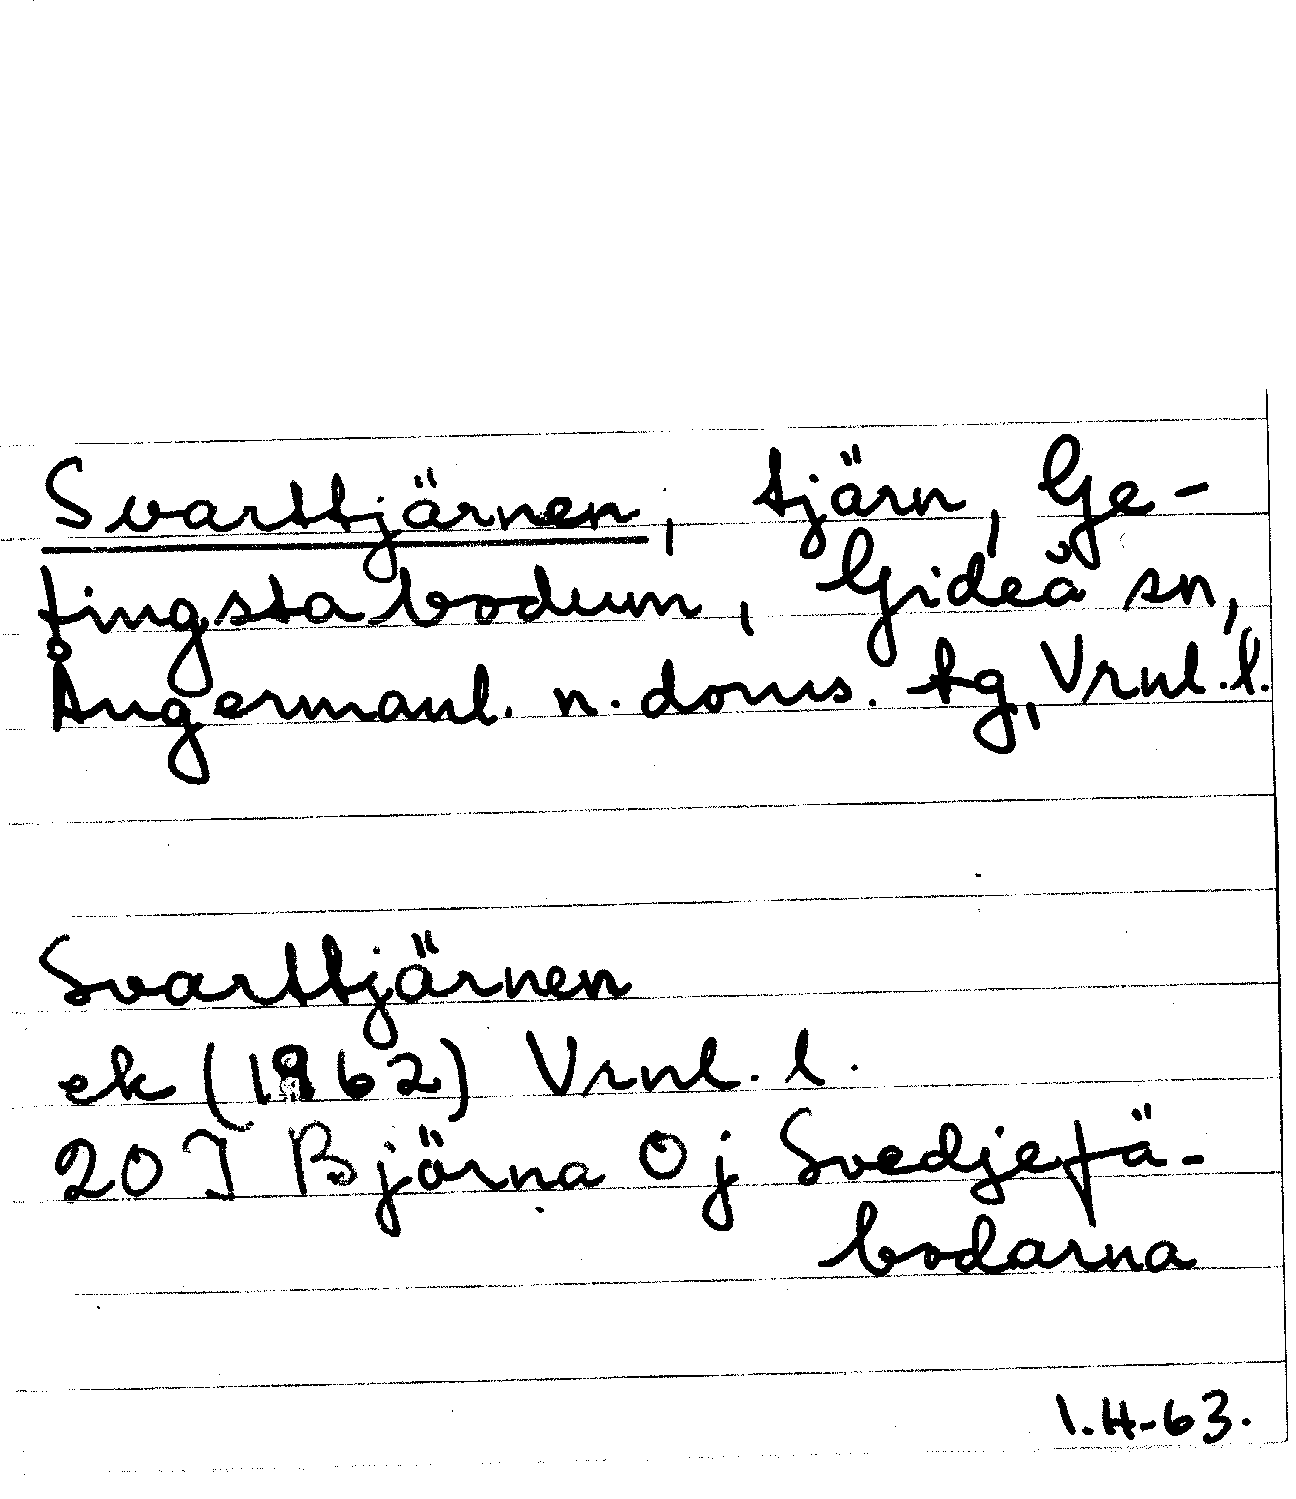 Svarttjärnen, tjärn, Ge-
tingstabodum, Gideå sn,
Ångermanl. n. doms. tg, Vrnl. l.
Svarttjärnen
ek (1962) Vrnl. l.
20 J Björna 0 j Svedjefä-
bodarna
I.H-63.